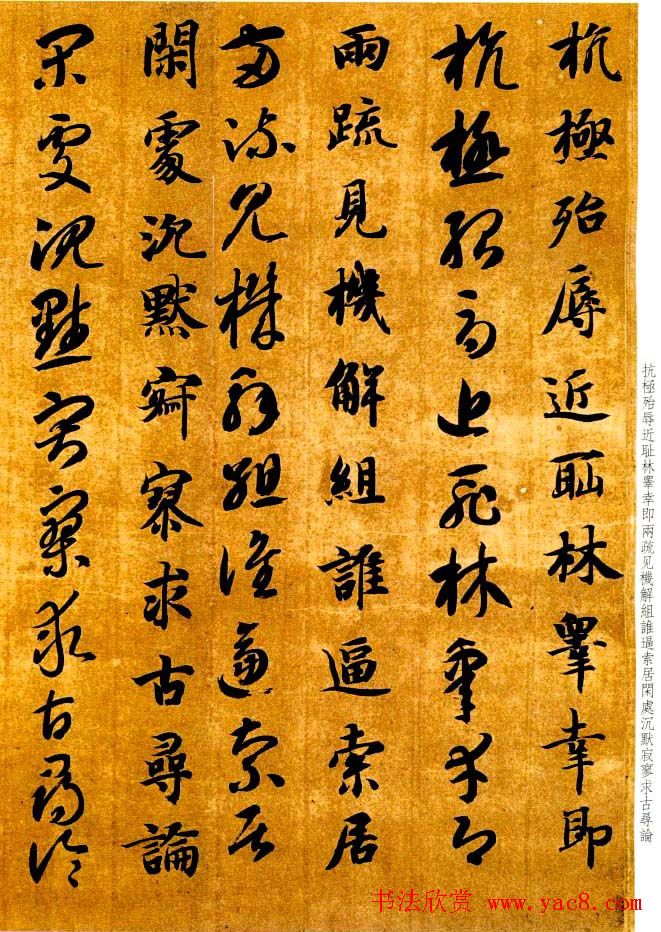 抗極殆辱近耻林睪幸即兩疏见機解組誰逼索居閑處沉默寂寥求古尋論
杭極殆辱近耻林睪幸即
杭極殆辱近耻林睪幸即
兩疏見機解組誰逼索居
兩疏見機解組誰逼索居
閑處沉默寂寥求古尋論
閑處沉默寂寥求古尋論
书法欣赏 www.yac8.com